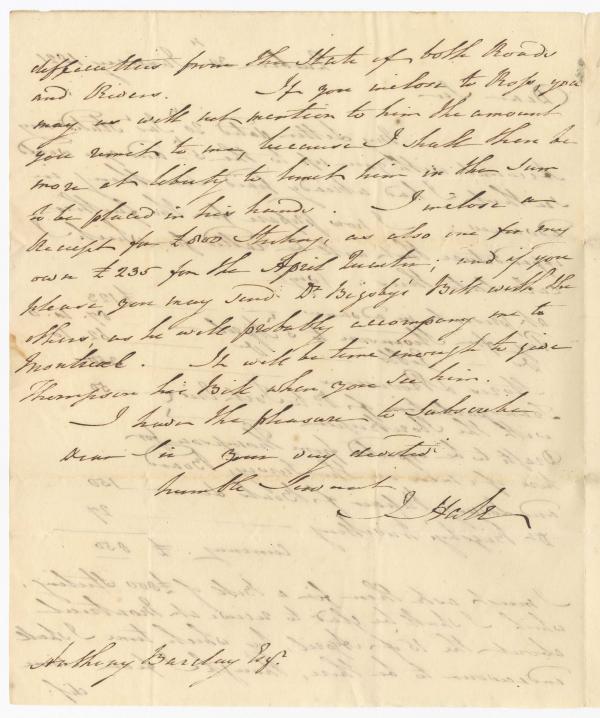 difficulties from the State of both Roads
and Rivers. If you inclose to Ross, you
may as well not mention to him the amount
you remit to me, because I shall then be
more at liberty to limit him in the Sum
to be placed in his hands. I inclose a
Receipt for £800 Sterling, as also one for my
own £235 for the April Quarter; and if you
please, you may send Dr. Bigsby's Bill with the
others, as he will probably accompany me to
Montreal. It will be time enough to give
Thompson his Bill when you see him.
I have the pleasure to Subscribe
Dear Sir your very devoted
humble Servant
J Hale
Anthony Barclay Esqr.